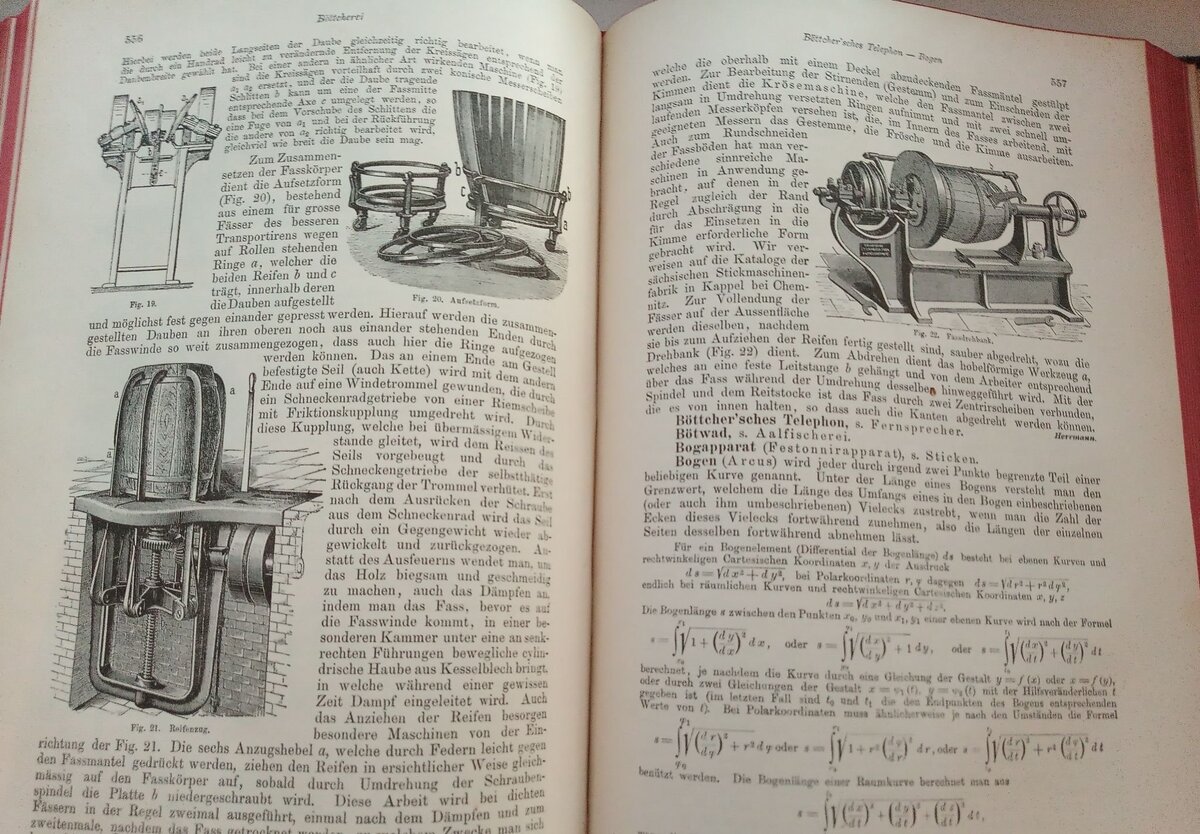 556
Böttcherei
Hierbei werden beide Langseiten der Daube gleichzeitig richtig bearbeitet, wenn man
die durch ein Handrad leicht zu verändernde Entfernung der Kreissägen entsprechend der
Daubenbreite gewählt hat. Bei einer andern in ähnlicher Art wirkenden Maschine (Fig. 19)
sind die Kreissägen vorteilhaft durch zwei konische Messerscheiben
a₁ a₂ ersetzt, und der die Daube tragende
Schlitten b kann um eine der Fassmitte
entsprechende Axe c umgelegt werden, so
dass bei dem Vorschube des Schlittens die
eine Fuge von a₁ und bei der Rückführung
die andere von a₂ richtig bearbeitet wird,
gleichviel wie breit die Daube sein mag.
Zum Zusammen-
setzen der Fasskörper
dient die Aufsetzform
(Fig. 20), bestehend
aus einem für grosse
Fässer des besseren
Transportirens wegen
auf Rollen stehenden
Ringe a, welcher die
beiden Reifen b und c
trägt, innerhalb deren
die Dauben aufgestellt
Fig. 19.
Fig. 20. Aufsetzform.
und möglichst fest gegen einander gepresst werden. Hierauf werden die zusammen-
gestellten Dauben an ihren oberen noch aus einander stehenden Enden durch
die Fasswinde so weit zusammengezogen, dass auch hier die Ringe aufgezogen
werden können. Das an einem Ende am Gestell
befestigte Seil (auch Kette) wird mit dem andern
Ende auf eine Windetrommel gewunden, die durch
ein Schneckenradgetriebe von einer Riemscheibe
mit Friktionskupplung umgedreht wird. Durch
diese Kupplung, welche bei übermässigem Wider-
stande gleitet, wird dem Reissen des
Seils vorgebeugt und durch das
Schneckengetriebe der selbstthätige
Rückgang der Trommel verhütet. Erst
nach dem Ausrücken der Schraube
aus dem Schneckenrad wird das Seil
durch ein Gegengewicht wieder ab-
gewickelt und zurückgezogen. An-
statt des Ausfeuerns wendet man, um
das Holz biegsam und geschmeidig
zu machen, auch das Dämpfen an,
indem man das Fass, bevor es auf
die Fasswinde kommt, in einer be-
sonderen Kammer unter eine an senk-
rechten Führungen bewegliche cylin-
drische Haube aus Kesselblech bringt,
in welche während einer gewissen
Zeit Dampf eingeleitet wird. Auch
das Anziehen der Reifen besorgen
besondere Maschinen von der Ein-
Fig. 21. Reifenzug.
richtung der Fig. 21. Die sechs Anzugshebel a, welche durch Federn leicht gegen
den Fassmantel gedrückt werden, ziehen den Reifen in ersichtlicher Weise gleich-
mässig auf den Fasskörper auf, sobald durch Umdrehung der Schrauben-
spindel die Platte b niedergeschraubt wird. Diese Arbeit wird bei dichten
Fässern in der Regel zweimal ausgeführt, einmal nach dem Dämpfen und zum
zweitenmale, nachdem das Fass getrocknet worden, zu welchem Zwecke man sich
Böttcher'sches Telephon — Bogen
557
welche die oberhalb mit einem Deckel abzudeckenden Fassmäntel gestülpt
werden. Zur Bearbeitung der Stirnenden (Gestemm) und zum Einschneiden der
Kimmen dient die Krösemaschine, welche den Fassmantel zwischen zwei
langsam in Umdrehung versetzten Ringen aufnimmt und mit zwei schnell um-
laufenden Messerköpfen versehen ist, die, im Innern des Fasses arbeitend, mit
geeigneten Messern das Gestemme, die Frösche und die Kimme ausarbeiten.
Auch zum Rundschneiden
der Fassböden hat man ver-
schiedene sinnreiche Ma-
schinen in Anwendung ge-
bracht, auf denen in der
Regel zugleich der Rand
durch Abschrägung in die
für das Einsetzen in die
Kimme erforderliche Form
gebracht wird. Wir ver-
weisen auf die Kataloge der
sächsischen Stickmaschinen-
fabrik in Kappel bei Chem-
nitz. Zur Vollendung der
Fässer auf der Aussenfläche
werden dieselben, nachdem
Fig. 22. Fassdrehbank.
sie bis zum Aufziehen der Reifen fertig gestellt sind, sauber abgedreht, wozu die
Drehbank (Fig. 22) dient. Zum Abdrehen dient das hobelförmige Werkzeug a,
welches an eine feste Leitstange b gehängt und von dem Arbeiter entsprechend
über das Fass während der Umdrehung desselben hinweggeführt wird. Mit der
Spindel und dem Reitstocke ist das Fass durch zwei Zentrirscheiben verbunden,
die es von innen halten, so dass auch die Kanten abgedreht werden können.
Herrmann.
Böttcher'sches Telephon, s. Fernsprecher.
Bötwad, s. Aalfischerei.
Bogapparat (Festonnirapparat), s. Sticken.
Bogen (Arcus) wird jeder durch irgend zwei Punkte begrenzte Teil einer
beliebigen Kurve genannt. Unter der Länge eines Bogens versteht man den
Grenzwert, welchem die Länge des Umfangs eines in den Bogen einbeschriebenen
(oder auch ihm umbeschriebenen) Vielecks zustrebt, wenn man die Zahl der
Ecken dieses Vielecks fortwährend zunehmen, also die Längen der einzelnen
Seiten desselben fortwährend abnehmen lässt.
Für ein Bogenelement (Differential der Bogenlänge) ds besteht bei ebenen Kurven und
rechtwinkeligen Cartesischen Koordinaten x, y der Ausdruck
ds = √dx² + dy², bei Polarkoordinaten r, φ dagegen ds = √dr² + r²dφ²,
endlich bei räumlichen Kurven und rechtwinkeligen Cartesischen Koordinaten x, y, z
ds = √dx² + dy² + dz².
Die Bogenlänge s zwischen den Punkten x₀, y₀ und x₁, y₁ einer ebenen Kurve wird nach der Formel
s = ∫√1 + (dy/dx)² dx, oder s = ∫√(dx/dy)² + 1 dy, oder s = ∫√(dx/dt)² + (dy/dt)² dt
berechnet, je nachdem die Kurve durch eine Gleichung der Gestalt y = f(x) oder x = f(y),
oder durch zwei Gleichungen der Gestalt x = φ₁(t), y = φ₂(t) mit der Hilfsveränderlichen t
gegeben ist (im letzten Fall sind t₀ und t₁ die den Endpunkten des Bogens entsprechenden
Werte von t). Bei Polarkoordinaten muss ähnlicherweise je nach den Umständen die Formel
s = ∫√(dr/dφ)² + r² dφ oder s = ∫√1 + r²(dφ/dr)² dr, oder s = ∫√(dr/dt)² + r²(dφ/dt)² dt
benützt werden. Die Bogenlänge einer Raumkurve berechnet man aus
s = ∫√(dx/dt)² + (dy/dt)² + (dz/dt)² dt,